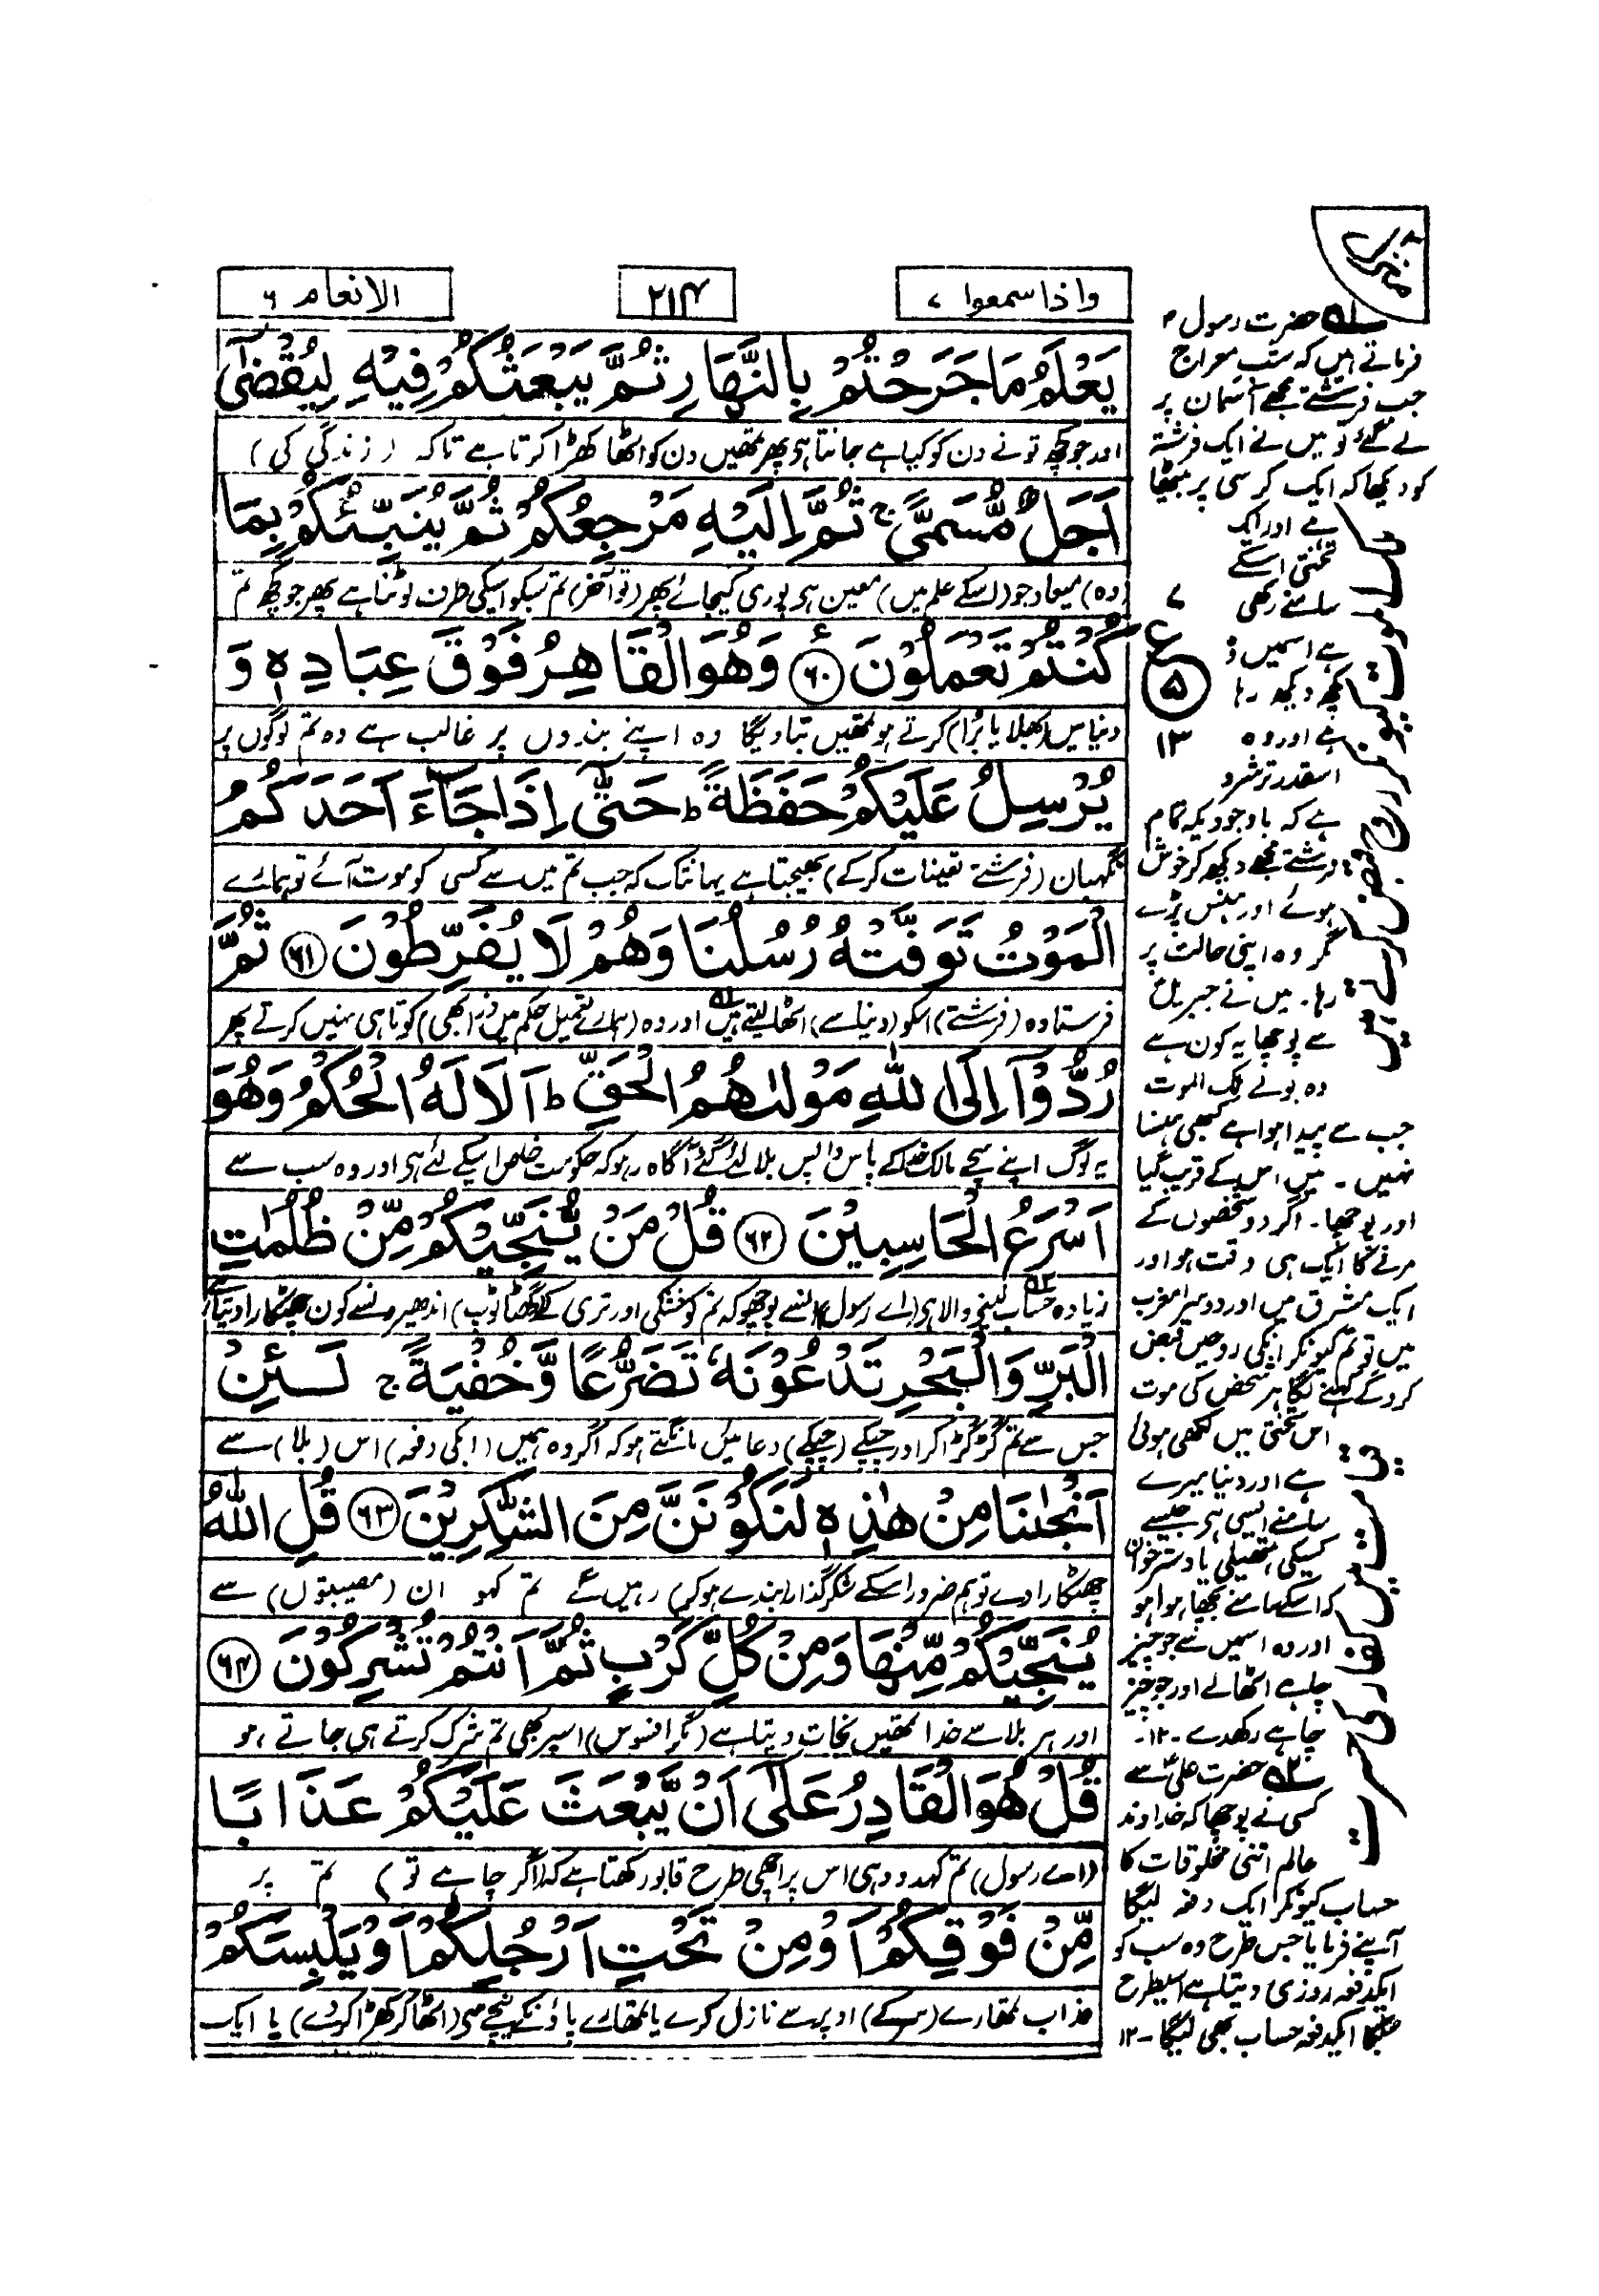 واذا سمعوا ۷
۲۱۴
الانعام ۶
يَعْلَمُ مَا جَرَحْتُمْ بِالنَّهَارِ ثُمَّ يَبْعَثُكُمْ فِيْهِ لِيُقْضٰۤى
اور جو کچھ تونے دن کو کیا ہے جانتا ہو پھر تمھیں دن کو اٹھا کھڑا کرتا ہے تاکہ (زندگی کی)
اَجَلٌ مُّسَمًّى ۚ ثُمَّ اِلَيْهِ مَرْجِعُكُمْ ثُمَّ يُنَبِّئُكُمْ بِمَا
(وہ) میعاد جو (اسکے علم میں) معین ہی پوری کیجائے پھر (تو آخر) تم سبکو اسیکی طرف لوٹنا ہے پھر جو کچھ تم
كُنْتُمْ تَعْمَلُوْنَ ﴿۶۰﴾ وَهُوَ الْقَاهِرُ فَوْقَ عِبَادِهٖ وَ
دنیا میں (بھلا یا بُرا) کرتے ہو تمھیں بتا دیگا وہ اپنے بندوں پر غالب ہے وہ تم لوگوں پر
يُرْسِلُ عَلَيْكُمْ حَفَظَةً ؕ حَتّٰۤى اِذَا جَآءَ اَحَدَكُمُ
نگہبان (فرشتے تعینات کرکے) بھیجتا ہے یہانتک کہ جب تم میں سے کسی کو موت آئے تو ہمارے
الْمَوْتُ تَوَفَّتْهُ رُسُلُنَا وَهُمْ لَا يُفَرِّطُوْنَ ﴿۶۱﴾ ثُمَّ
فرستادہ (فرشتے) اسکو (دنیا سے) اٹھا لیتے ہیں اور وہ (ہمارے تعمیل حکم میں ذرا بھی) کوتاہی نہیں کرتے پھر
رُدُّوْۤا اِلَى اللّٰهِ مَوْلٰىهُمُ الْحَقِّ ؕ اَلَا لَهُ الْحُكْمُ وَهُوَ
یہ لوگ اپنے سچے مالک خدا کے پاس واپس بلا لئے گئے آگاہ رہو کہ حکومت خاص اسیکے لئے ہی اور وہ سب سے
اَسْرَعُ الْحَاسِبِيْنَ ﴿۶۲﴾ قُلْ مَنْ يُّنَجِّيْكُمْ مِّنْ ظُلُمٰتِ
زیادہ حساب لینے والا ہی (اے رسول) انسے پوچھو کہ تم کو خشکی اور تری کے (گھٹا ٹوپ) اندھیروں سے کون چھٹکارا دیتا ہے
الْبَرِّ وَالْبَحْرِ تَدْعُوْنَهٗ تَضَرُّعًا وَّخُفْيَةً ۚ لَئِنْ
جس سے تم گڑ گڑا کر اور چپکے (چپکے) دعائیں مانگتے ہو کہ اگر وہ ہمیں (ابکی دفعہ) اس (بلا) سے
اَنْجٰىنَا مِنْ هٰذِهٖ لَنَكُوْنَنَّ مِنَ الشّٰكِرِيْنَ ﴿۶۳﴾ قُلِ اللّٰهُ
چھٹکارا دے تو ہم ضرور اسکے شکر گذار (بندے ہو کر) رہیں گے تم کہو ان (مصیبتوں) سے
يُنَجِّيْكُمْ مِّنْهَا وَمِنْ كُلِّ كَرْبٍ ثُمَّ اَنْتُمْ تُشْرِكُوْنَ ﴿۶۴﴾
اور ہر بلا سے خدا تمھیں نجات دیتا ہے (مگر افسوس) اسپر بھی تم شرک کرتے ہی جاتے ہو
قُلْ هُوَ الْقَادِرُ عَلٰۤى اَنْ يَّبْعَثَ عَلَيْكُمْ عَذَابًا
(اے رسول) تم کہدو وہی اس پر اچھی طرح قابو رکھتا ہے کہ (اگر چاہے تو) تم پر
مِّنْ فَوْقِكُمْ اَوْ مِنْ تَحْتِ اَرْجُلِكُمْ اَوْ يَلْبِسَكُمْ
عذاب تمھارے (سر کے) اوپر سے نازل کرے یا تمھارے پاؤنکے نیچے سے (اٹھا کر کھڑا کردے) یا ایک
منزل ۲
۷
ع
۵
۱۳
۱ حضرت رسول ؐ
فرماتے ہیں کہ شب معراج
جب فرشتے مجھے آسمان پر
لے گئے تو میں نے ایک فرشتہ
کو دیکھا کہ ایک کرسی پر بیٹھا
ہے اور ایک
تختی اسکے
سامنے رکھی
ہے اسمیں وہ
کچھ دیکھ رہا
ہے اور وہ
اسقدر ترشرو
ہے کہ باوجودیکہ تمام
فرشتے مجھے دیکھ کر خوش
ہوئے اور ہنس پڑے
مگر وہ اپنی حالت پر
رہا۔ میں نے جبریل
سے پوچھا یہ کون ہے
وہ بولے ملک الموت
جب سے پیدا ہوا ہے کبھی ہنسا
نہیں۔ میں اس کے قریب گیا
اور پوچھا۔ اگر دو شخصوں کے
مرنے کا ایک ہی وقت ہو اور
ایک مشرق میں اور دوسرا مغرب
میں تو تم کیونکر انکی روحیں قبض
کروگے کہنے لگا ہر شخص کی موت
اس تختی میں لکھی ہوئی
ہے اور دنیا میرے
سامنے ایسی ہی جیسے
کسیکی ہتھیلی یا دسترخوان
کہ اسکے سامنے بچھا ہوا ہو
اور وہ اسمیں سے جو چیز
چاہے اٹھالے اور جو چیز
چاہے رکھدے ۔۱۲۔
۲ حضرت علیؑ سے
کسی نے پوچھا کہ خداوند
عالم اتنی مخلوقات کا
حساب کیونکر ایک دفعہ لیگا
آپنے فرمایا جس طرح وہ سب کو
ایکدفعہ روزی دیتا ہے اسیطرح
سبکا ایکدفعہ حساب بھی لیگا۔۱۲